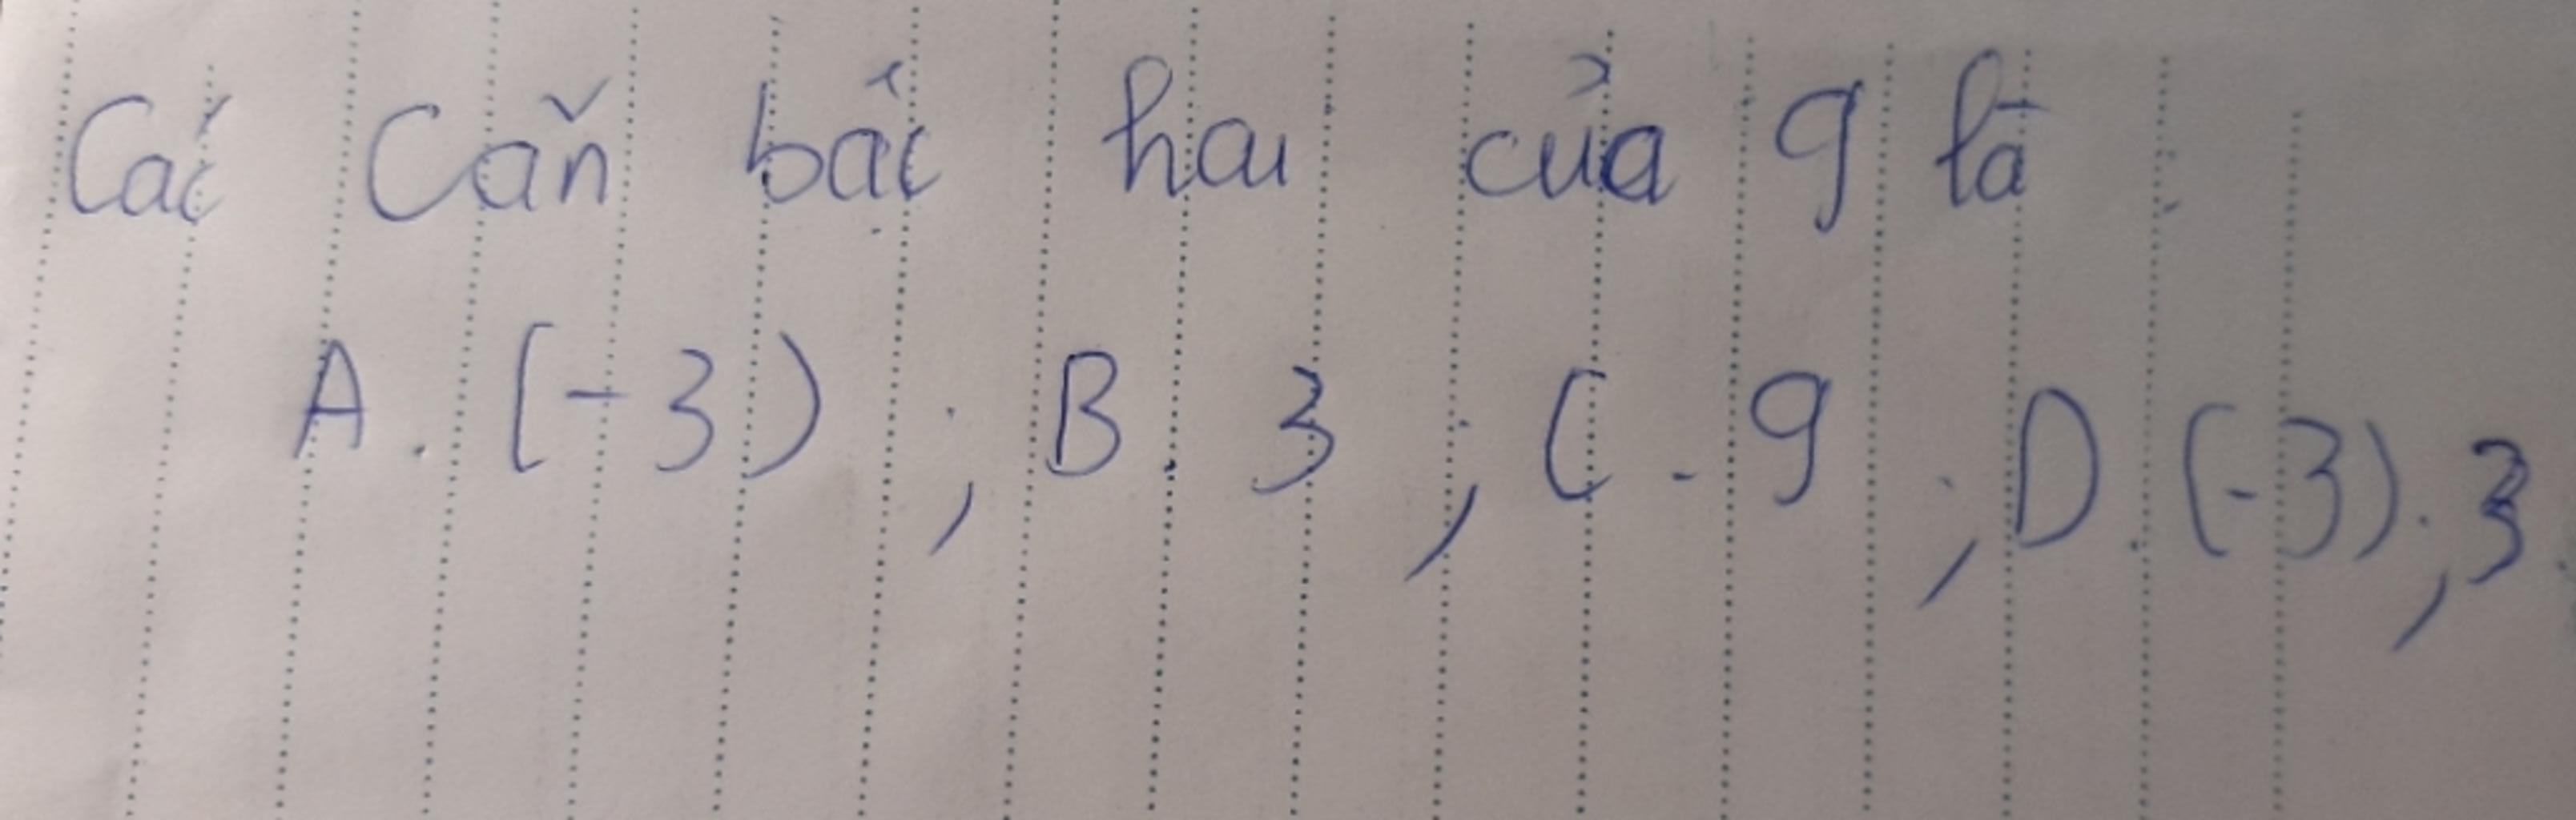 Các Căn bậc hai của 9 là :
A. (-3) ; B. 3 ; C. 9 ; D. (-3) ; 3.